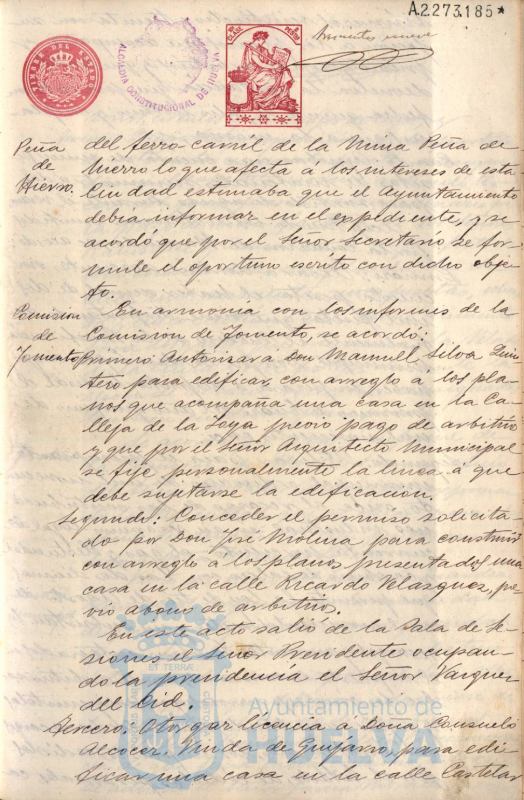 A.2.273.185*
TIMBRE DEL ESTADO
ALCALDIA CONSTITUCIONAL DE HUELVA
CLASE
PESETA
nueve
Peña
de
Hierro.
del ferro-carril de la Mina Peña de
hierro lo que afecta á los intereses de esta
Ciudad estimaba que el Ayuntamiento
debia informar en el expediente, y se
acordó que por el Señor Secretario se for-
mule el oportuno escrito con dicho obje-
to.
Comision
de
Fomento
En armonia con los informes de la
Comision de Fomento, se acordó:
Primero Autorizar a Don Manuel Silva Quin
tero para edificar, con arreglo á los pla-
nos que acompaña una casa en la Ca-
lleja de la Joya previo pago de arbitrios
y que por el Señor Arquitecto Municipal
se fije personalmente la linea á que
debe sujetarse la edificacion.
Segundo: Conceder el permiso solicita
do por Don José Molina para construir
con arreglo á los planos presentados una
casa en la calle Ricardo Velazquez, pre
vio abono de arbitrios.
En este acto salió de la Sala de Se-
siones el Señor Presidente ocupan-
do la presidencia el Señor Vazquez
del Cid.
Tercero. Otorgar licencia á Doña Consuelo
Alcocer, Viuda de Guijarro, para edi-
ficar una casa en la calle Castelar
Ayuntamiento de
HUELVA